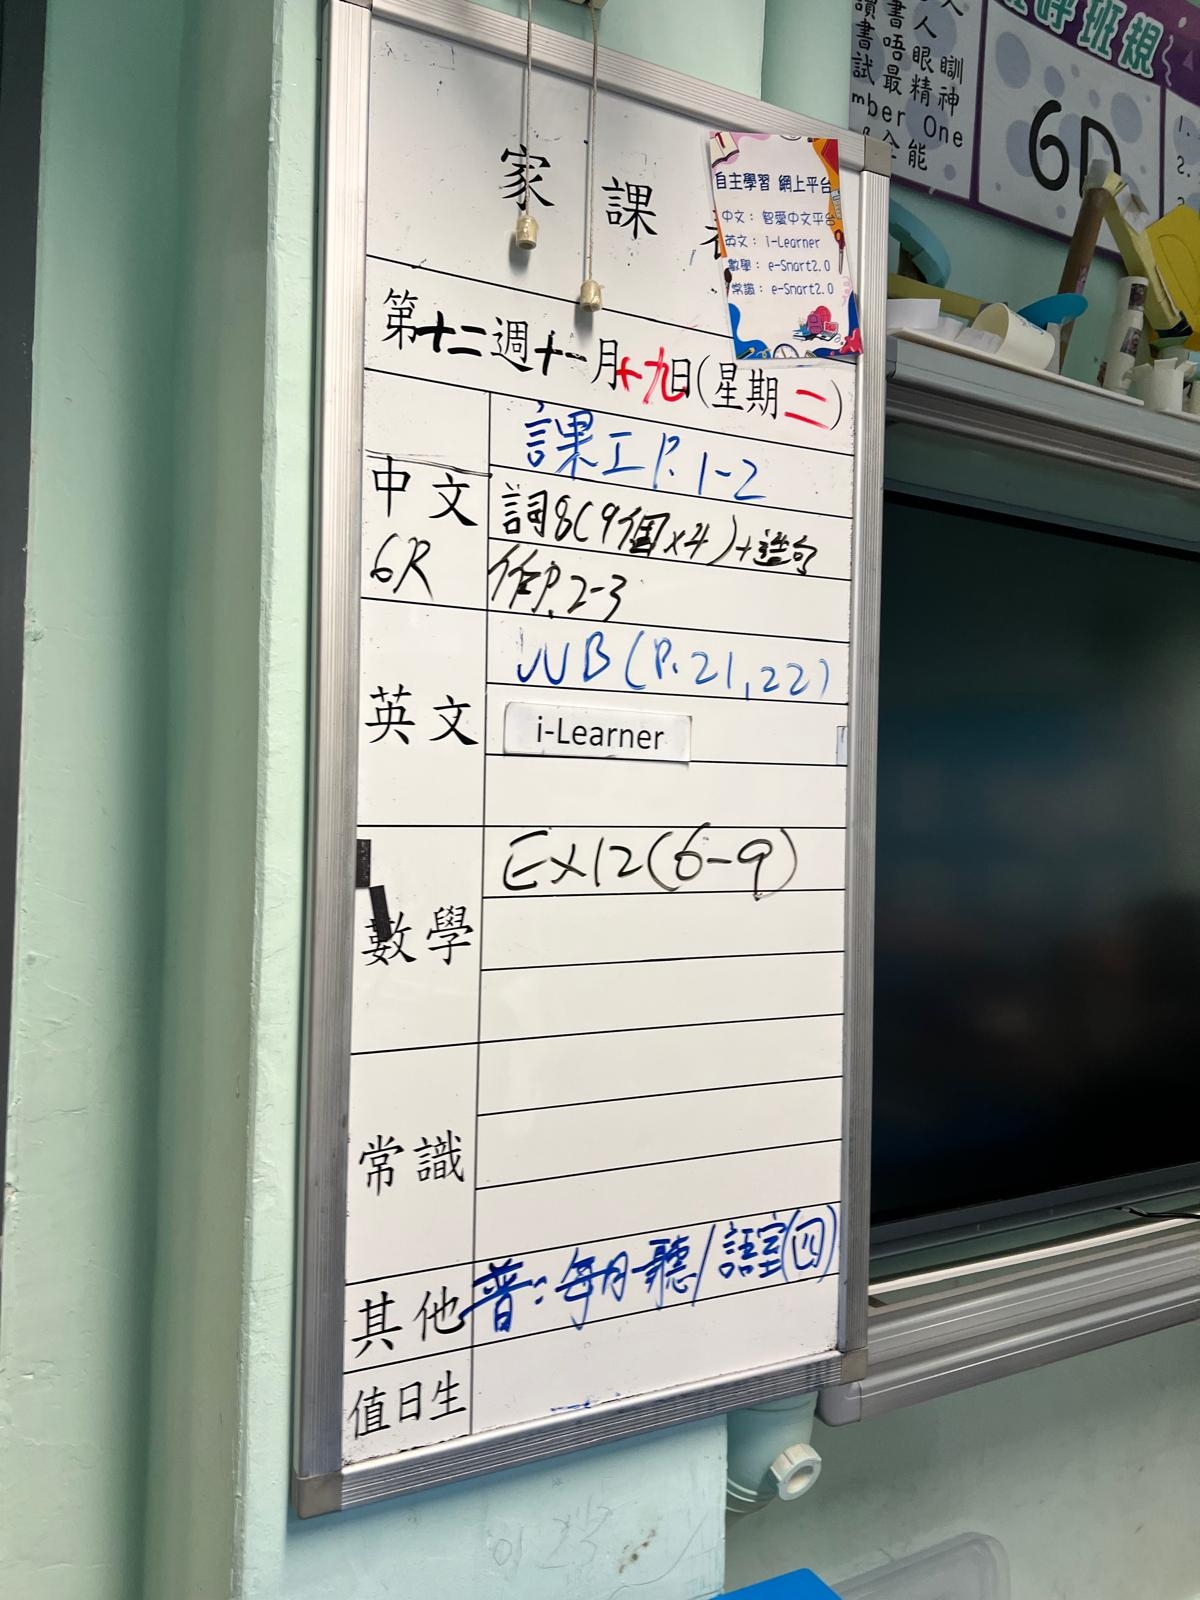 家課
第十二週十一月十九日(星期二)
中文
6R
課工P.1-2
詞8(9個x4)+造句
作P.2-3
英文
WB(P.21,22)
i-Learner
數學
Ex12(6-9)
常識
其他
普:每月聽/語室(四)
值日生
自主學習 網上平台
中文: 智愛中文平台
英文: i-Learner
數學: e-Smart2.0
常識: e-Smart2.0
書唔眼瞓
試最精神
mber One
全能
班規
6R
1.
2.